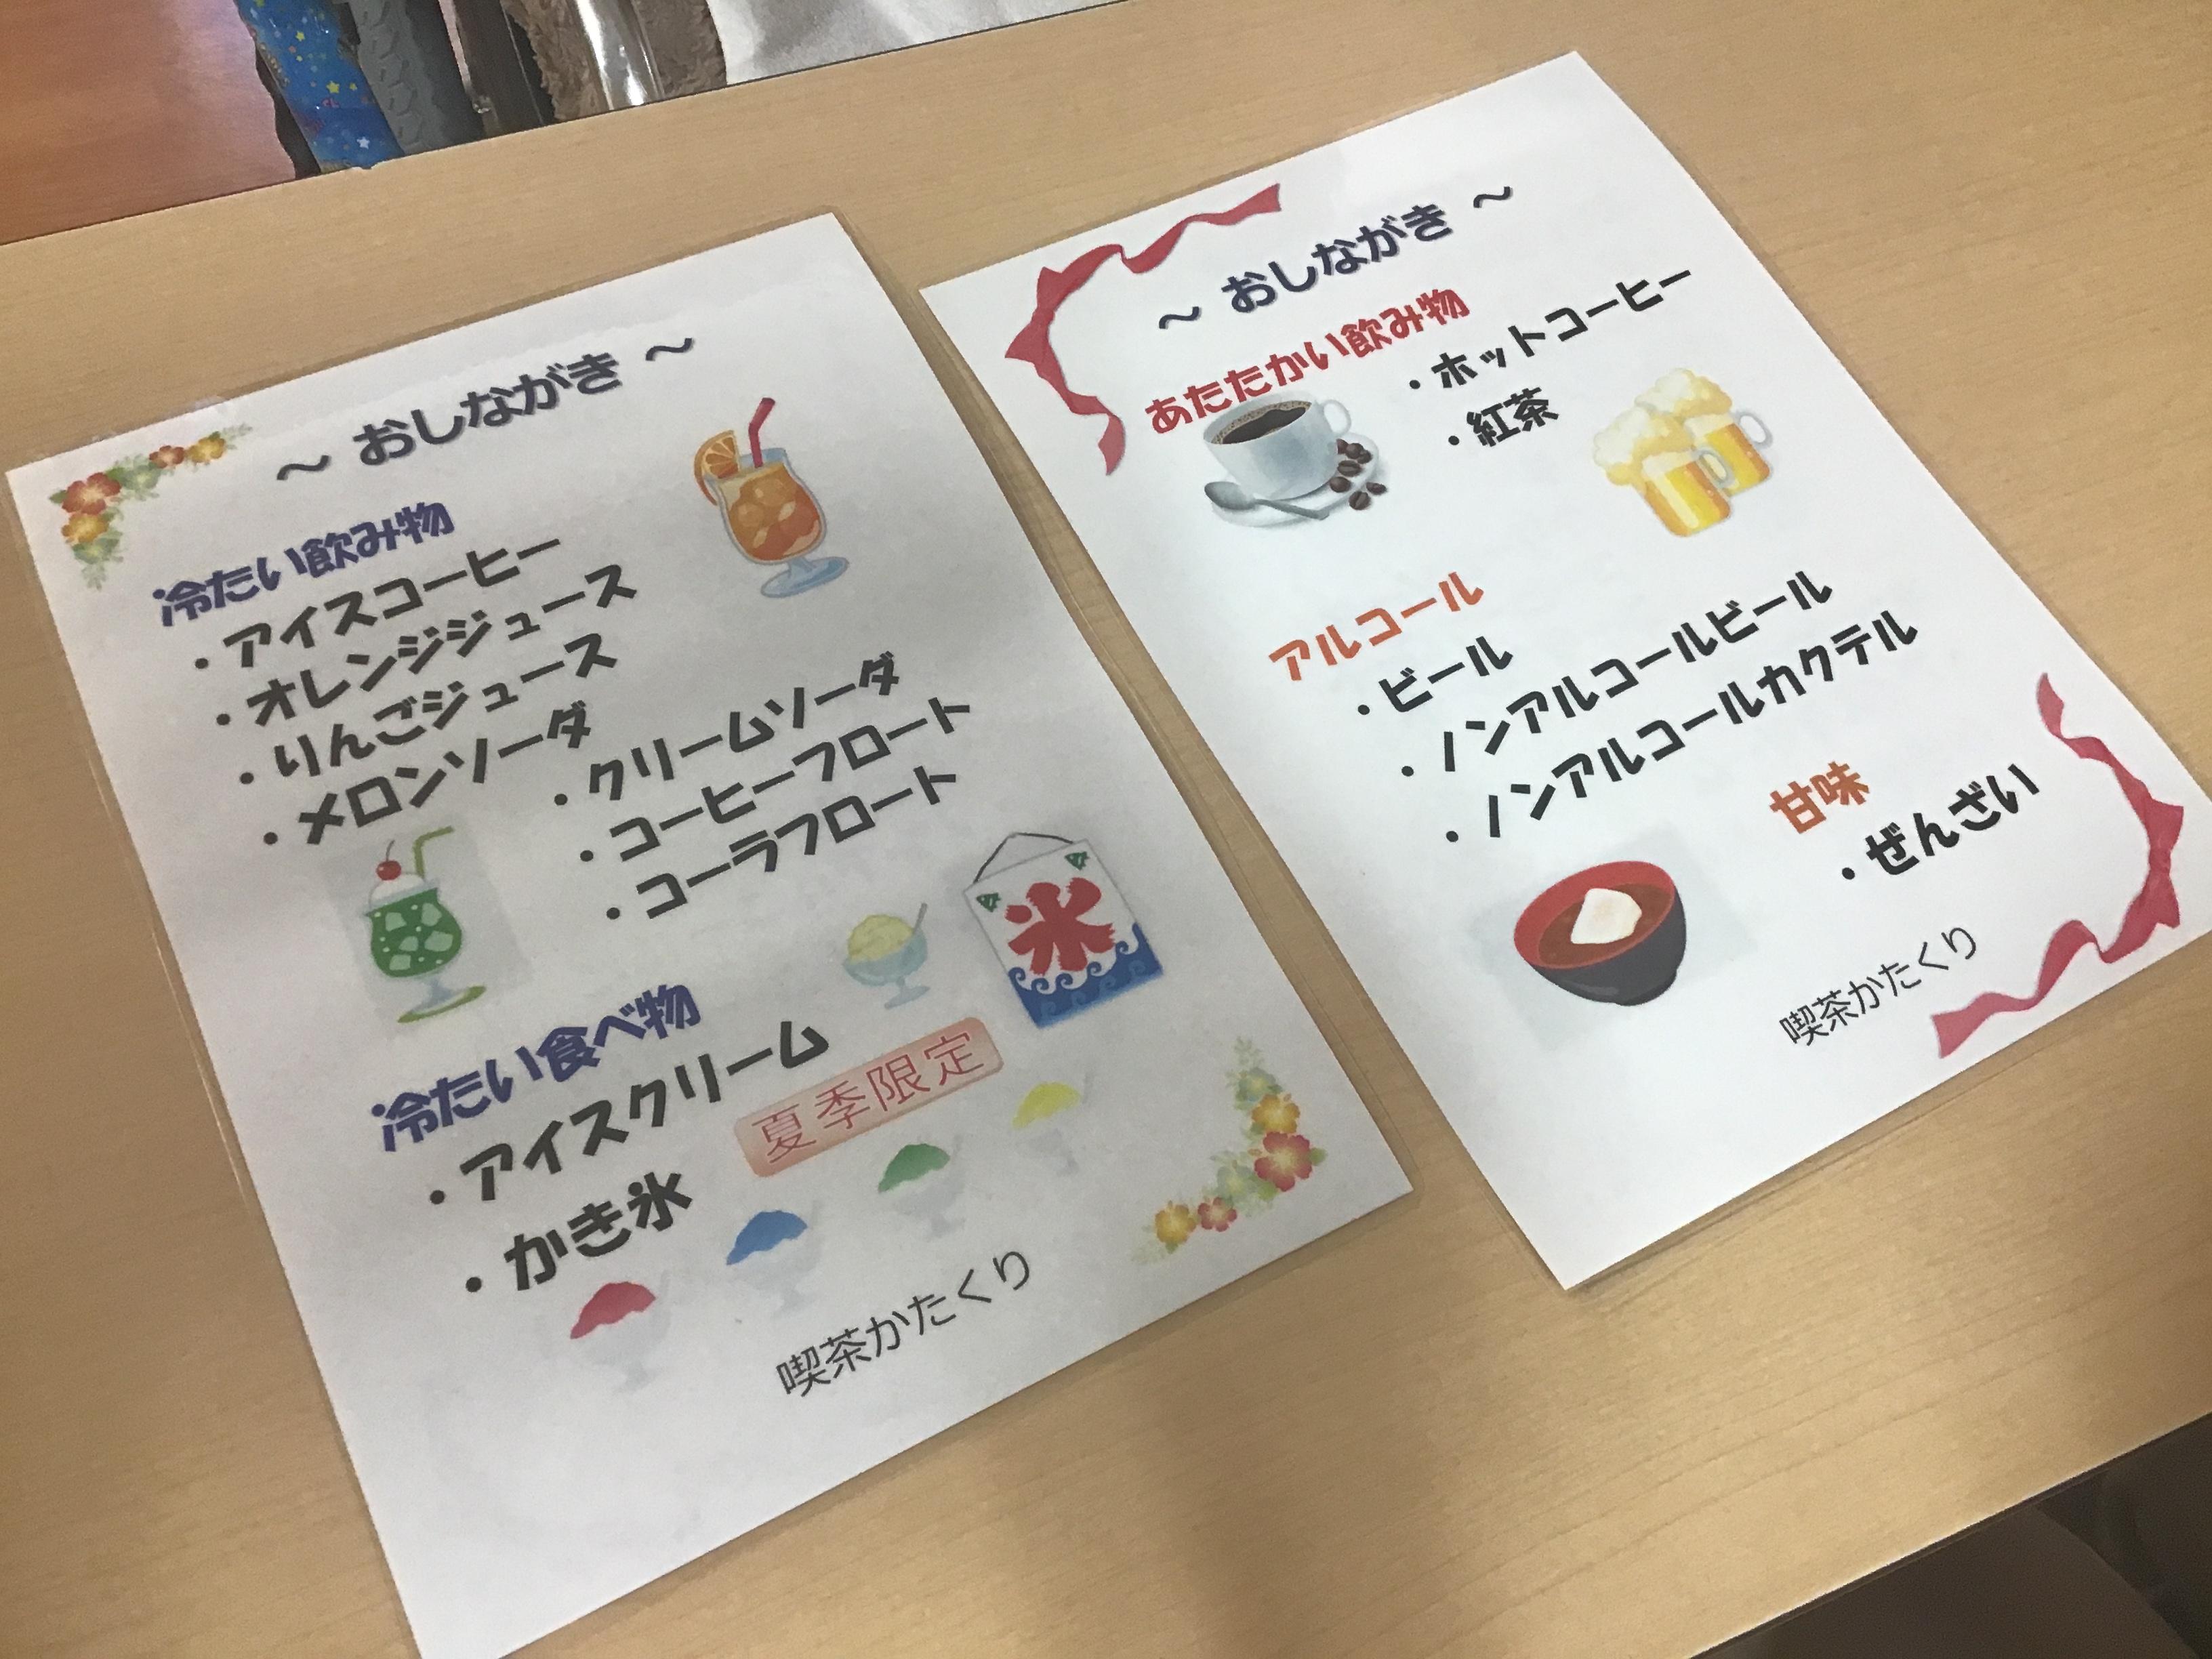 ～ おしながき ～
冷たい飲み物
・アイスコーヒー
・オレンジジュース
・りんごジュース
・メロンソーダ
・クリームソーダ
・コーヒーフロート
・コーラフロート
氷
冷たい食べ物
・アイスクリーム
夏季限定
・かき氷
喫茶かたくり
～ おしながき ～
あたたかい飲み物
・ホットコーヒー
・紅茶
アルコール
・ビール
・ノンアルコールビール
・ノンアルコールカクテル
甘味
・ぜんざい
喫茶かたくり